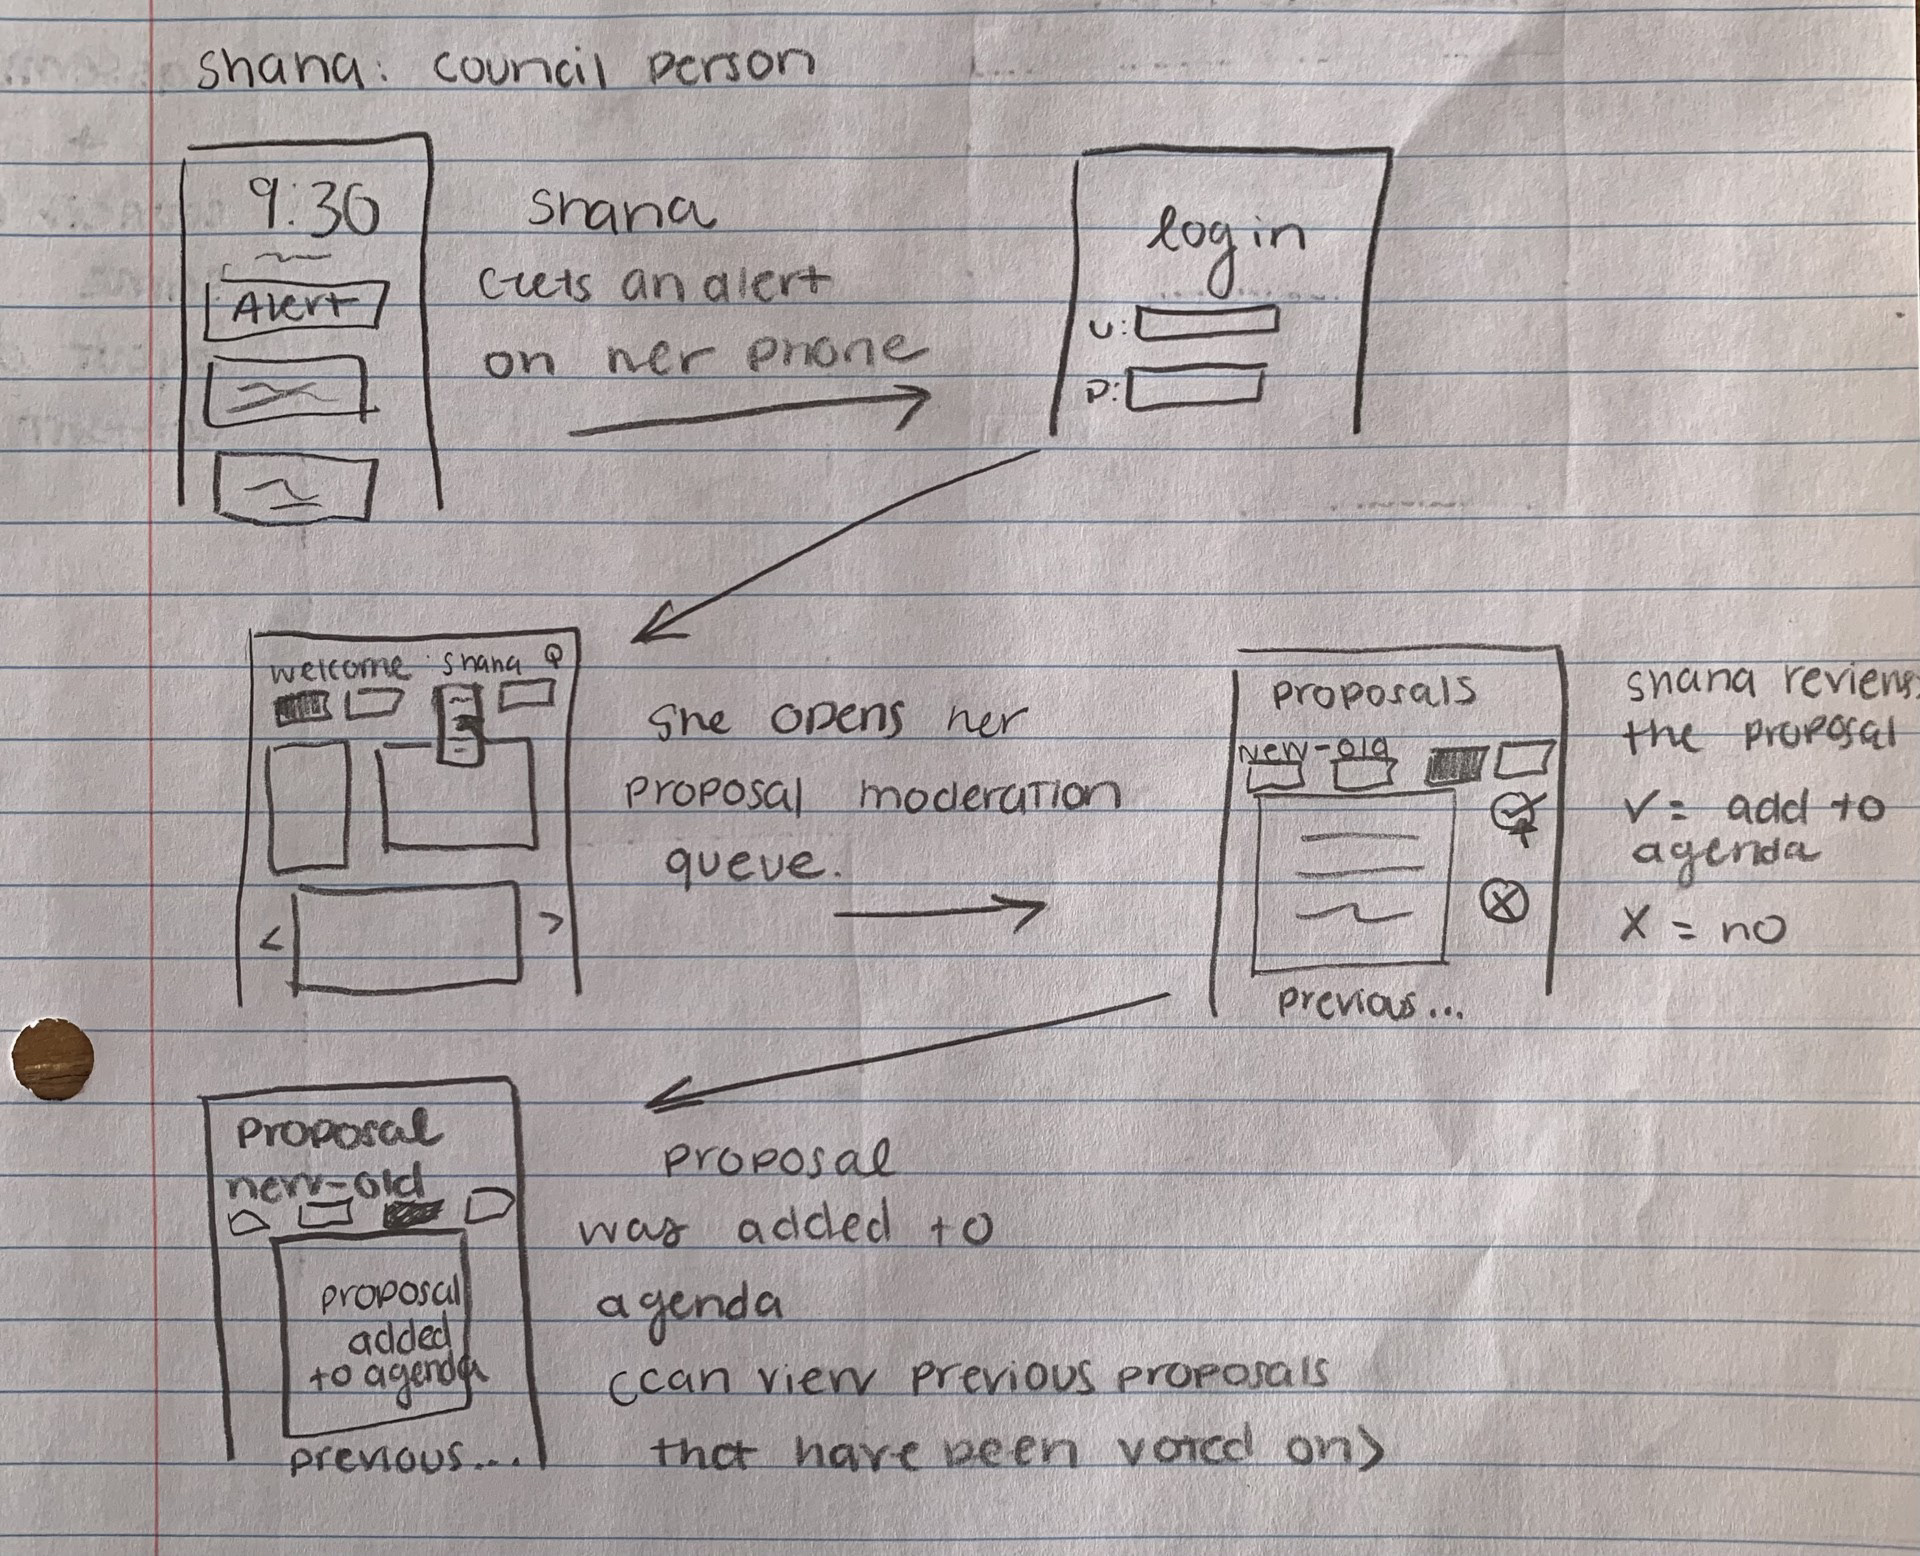 Shana: council person
9:30
Alert
Shana
Gets an alert
on her phone
log in
U:
P:
welcome Shana
She opens her
proposal moderation
queue.
<
>
proposals
new-old
X
previous...
Shana reviews
the proposal
✓= add to
agenda
X = no
proposal
new-old
proposal
added
to agenda
previous...
proposal
was added to
agenda
(can view previous proposals
that have been voted on)